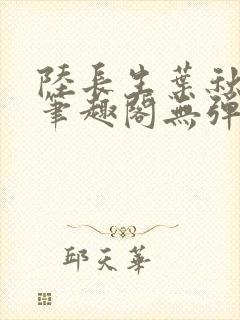 陸長生葉秋
筆趣閣無彈
邱天華